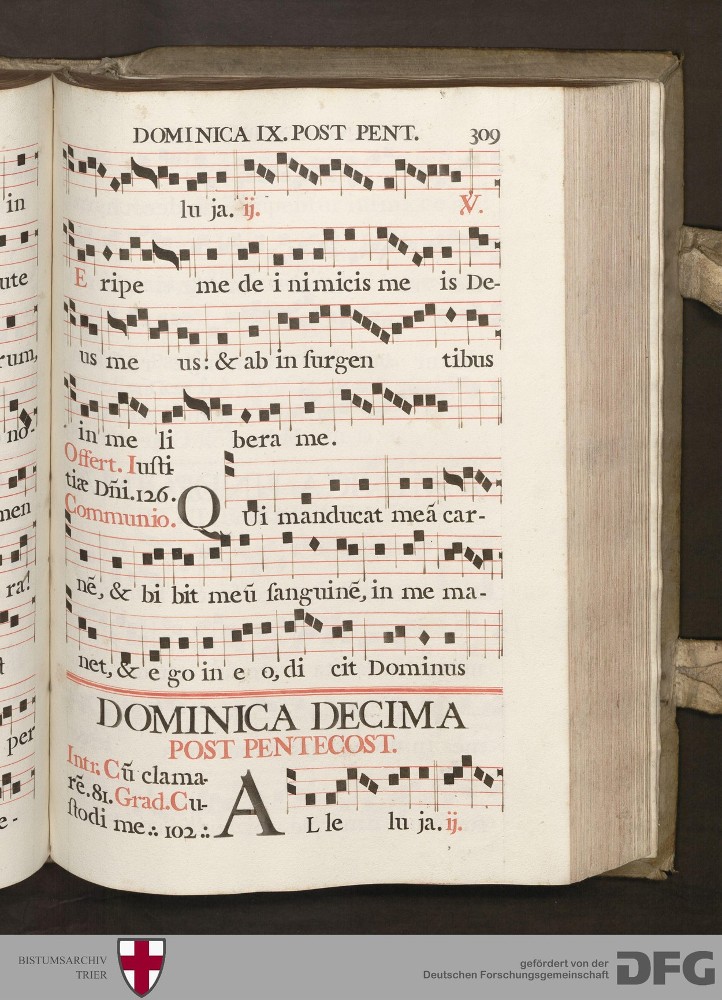 in
ute
rum,
no-
men
ra!
per
e-
DOMINICA IX. POST PENT. 309
lu ja. ij. V.
E ripe me de i nimicis me is De-
us me us: & ab in surgen tibus
in me li bera me.
Offert. Iusti-
tiæ Dñi. 126.
Communio. QUi manducat meã car-
nẽ, & bi bit meũ sanguinẽ, in me ma-
net, & e go in e o, di cit Dominus
DOMINICA DECIMA
POST PENTECOST.
Intr. Cũ clama-
rẽ. 81. Grad. Cu-
stodi me ∴ 102 ∴ AL le lu ja. ij.
BISTUMSARCHIV
TRIER
gefördert von der
Deutschen Forschungsgemeinschaft
DFG